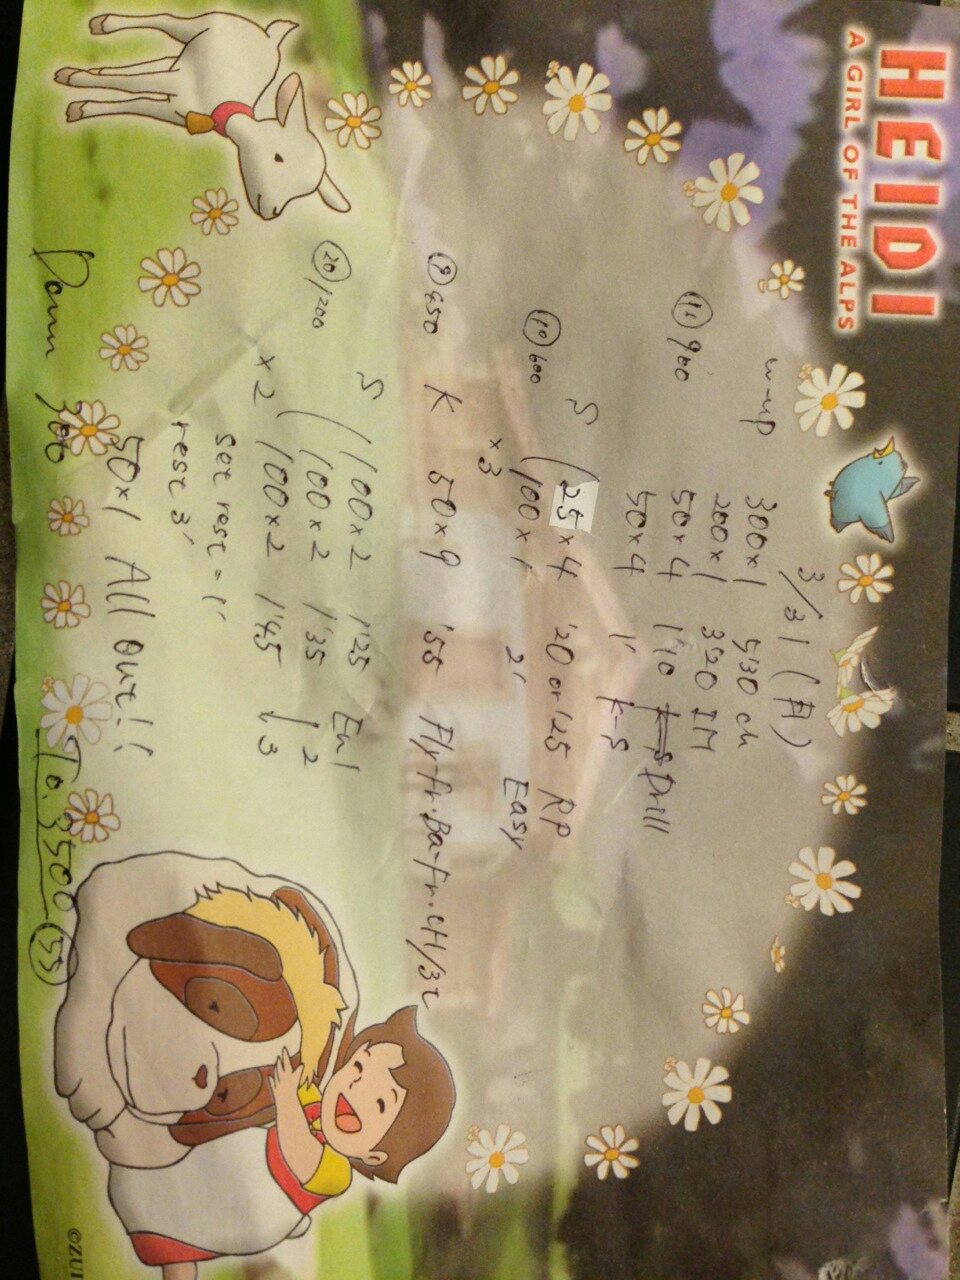 HEIDI
A GIRL OF THE ALPS
3/31 (月)
w-up 300×1 5'30 ch
200×1 3'20 IM
50×4 1'10 Drill
⑯ 900 50×4 1' k-S
S (25×4 '20 or '25 RP
⑩ 600 (100×1 2' Easy
×3
⑨ 450 K 50×9 '55 Fly-fr. Ba-fr. CH/3t
S (100×2 1'25 En1
⑳ 1200 (100×2 1'35 ↓ 2
×2 (100×2 1'45 ↓ 3
set rest = 1'
rest 3'
50×1 All out!!
Down 300 To. 3500 (55)